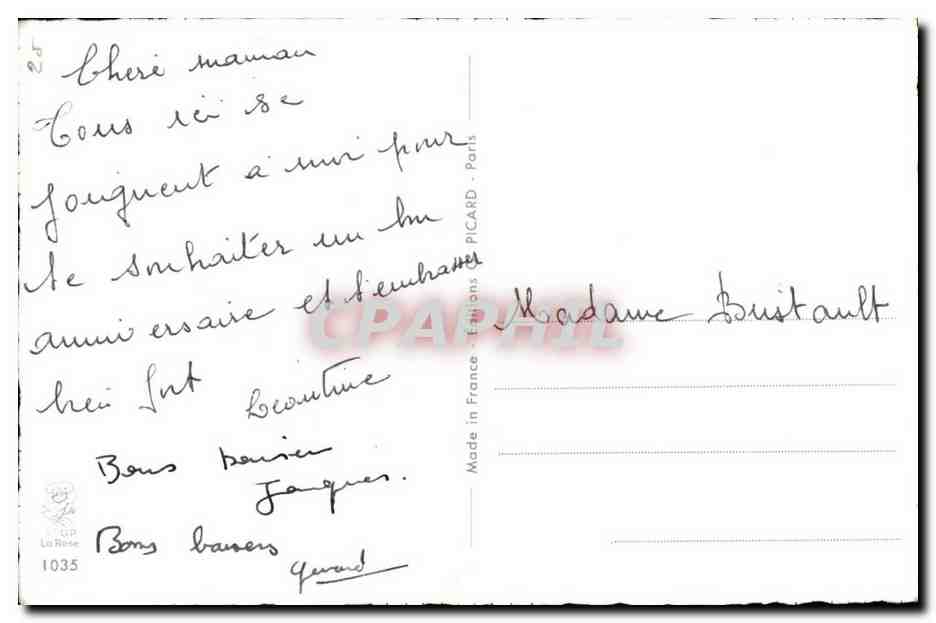 20
Cheré maman
Tous ici se
joignent à moi pour
te souhaiter un bon
anniversaire et t'embrasser
bien fort Léontine
Bons baisers
Jacques.
Bons baisers
Gérard
GP
La Rose
1035
Made in France - Editions PICARD - Paris
CPAPHIL
Madame Bustault